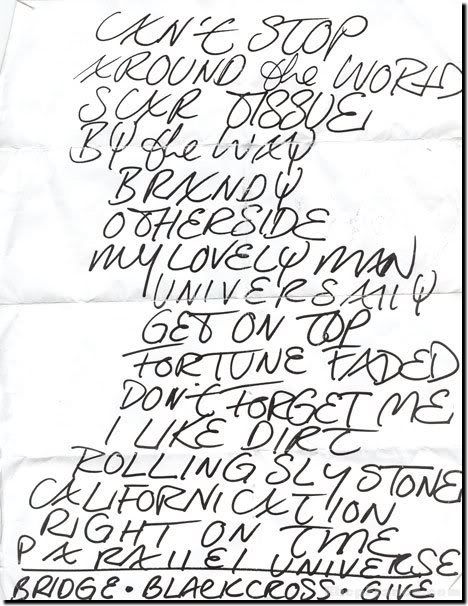 CAN'T STOP
AROUND the WORLD
SCAR TISSUE
BY the WAY
BRANDY
OTHERSIDE
MY LOVELY MAN
UNIVERSALLY
GET ON TOP
FORTUNE FADED
DON'T FORGET ME
I LIKE DIRT
ROLLING SLY STONE
CALIFORNICATION
RIGHT ON TIME
PARALLEL UNIVERSE
BRIDGE · BLACKCROSS · GIVE